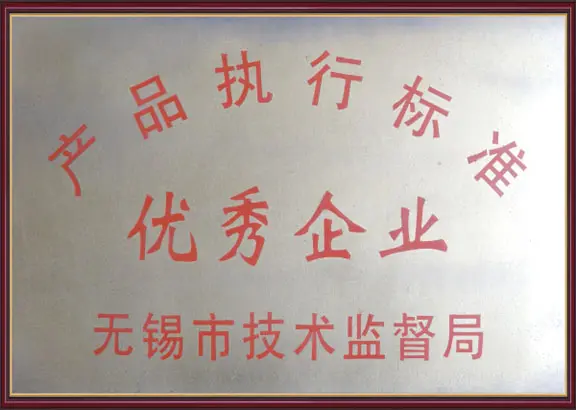 产品执行标准
优秀企业
无锡市技术监督局